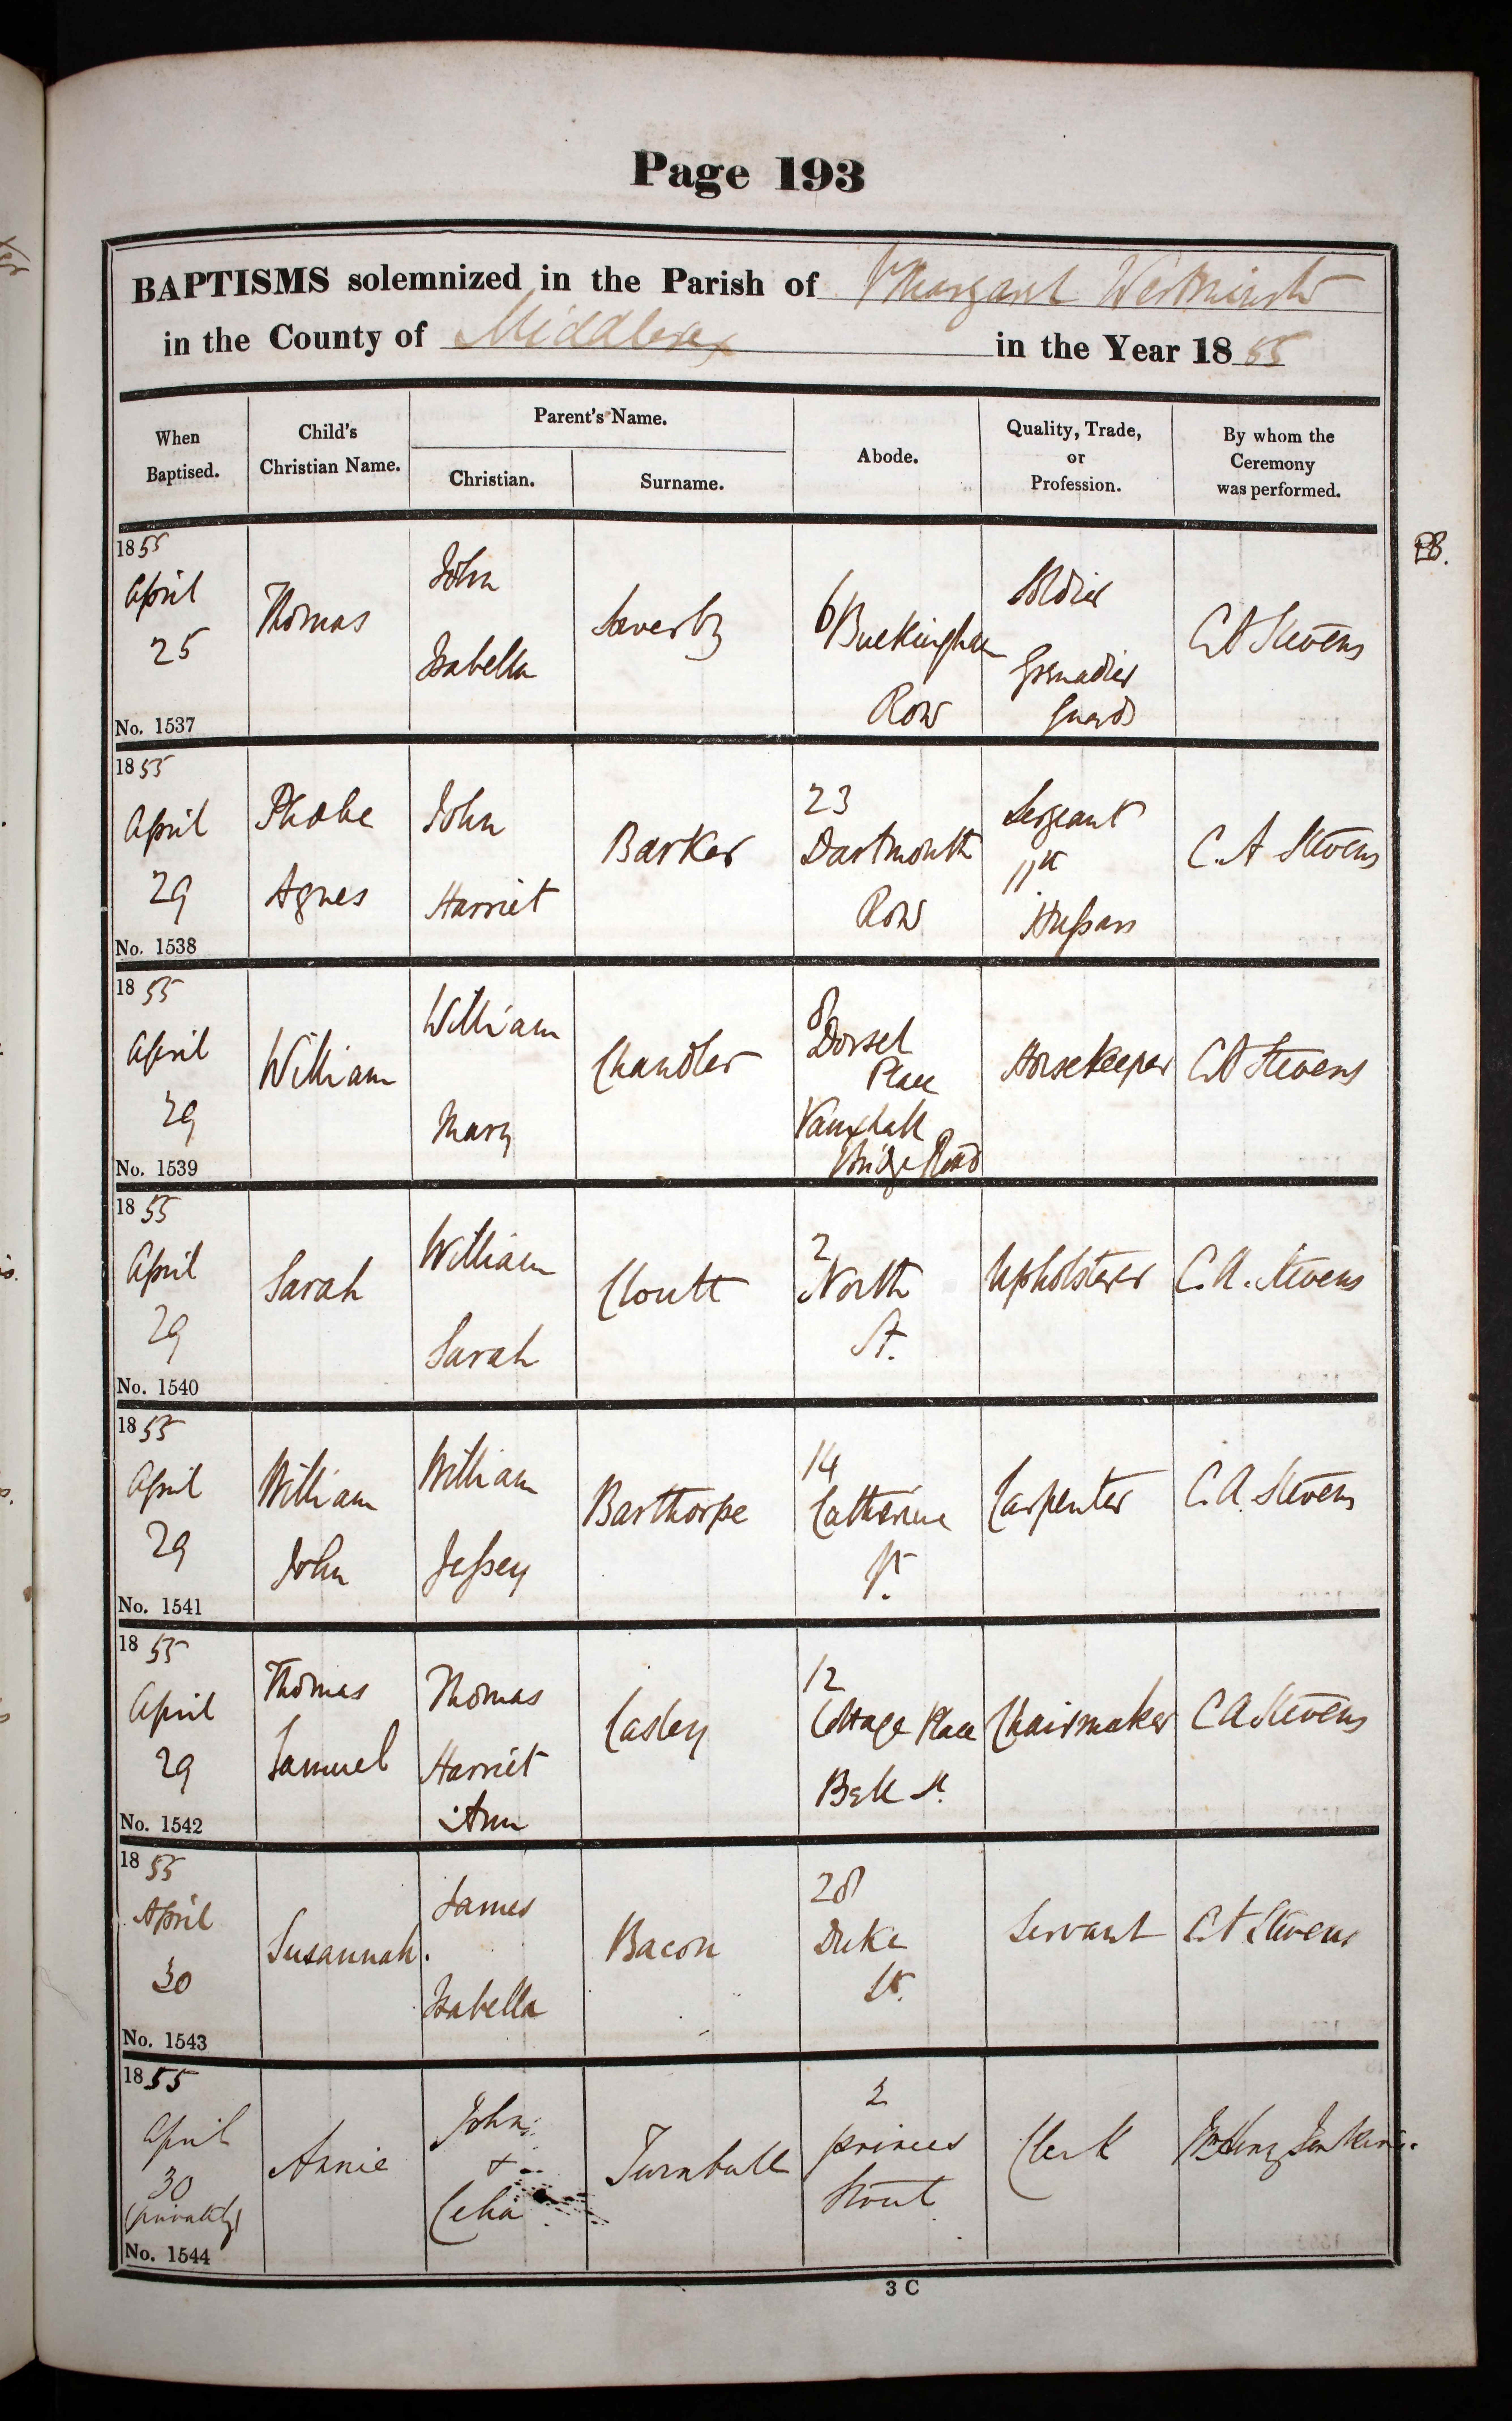 Page 193
BAPTISMS solemnized in the Parish of St Margaret Westminster
in the County of Middlesex in the Year 1855
When
Baptised.
Child's
Christian Name.
Parent's Name.
Christian.
Surname.
Abode.
Quality, Trade,
or
Profession.
By whom the
Ceremony
was performed.
1855
April
25
No. 1537
Thomas
John
Isabella
Saverby
6 Buckingham
Row
Soldier
Grenadier
Guards
CA Stevens
1855
April
29
No. 1538
Phœbe
Agnes
John
Harriet
Barker
23
Dartmouth
Row
Sergeant
11th
Hussars
C. A Stevens
1855
April
29
No. 1539
William
William
Mary
Chandler
8
Dorset
Place
Vauxhall
Bridge Road
Horsekeeper
CA Stevens
1855
April
29
No. 1540
Sarah
William
Sarah
Cloutt
2
North
St.
Upholsterer
C. A. Stevens
1855
April
29
No. 1541
William
John
William
Jessey
Barthorpe
14
Catherine
St.
Carpenter
C. A. Stevens
1855
April
29
No. 1542
Thomas
Samuel
Thomas
Harriet
Ann
Casley
12
Cottage Place
Bell St.
Chairmaker
C A Stevens
1855
April
30
No. 1543
Susannah.
James
Isabella
Bacon
28
Duke
St.
Servant
C A Stevens
1855
April
30
(privately)
No. 1544
Annie
John
+
Celia
Turnbull
2
princes
Street
Clerk
3 C